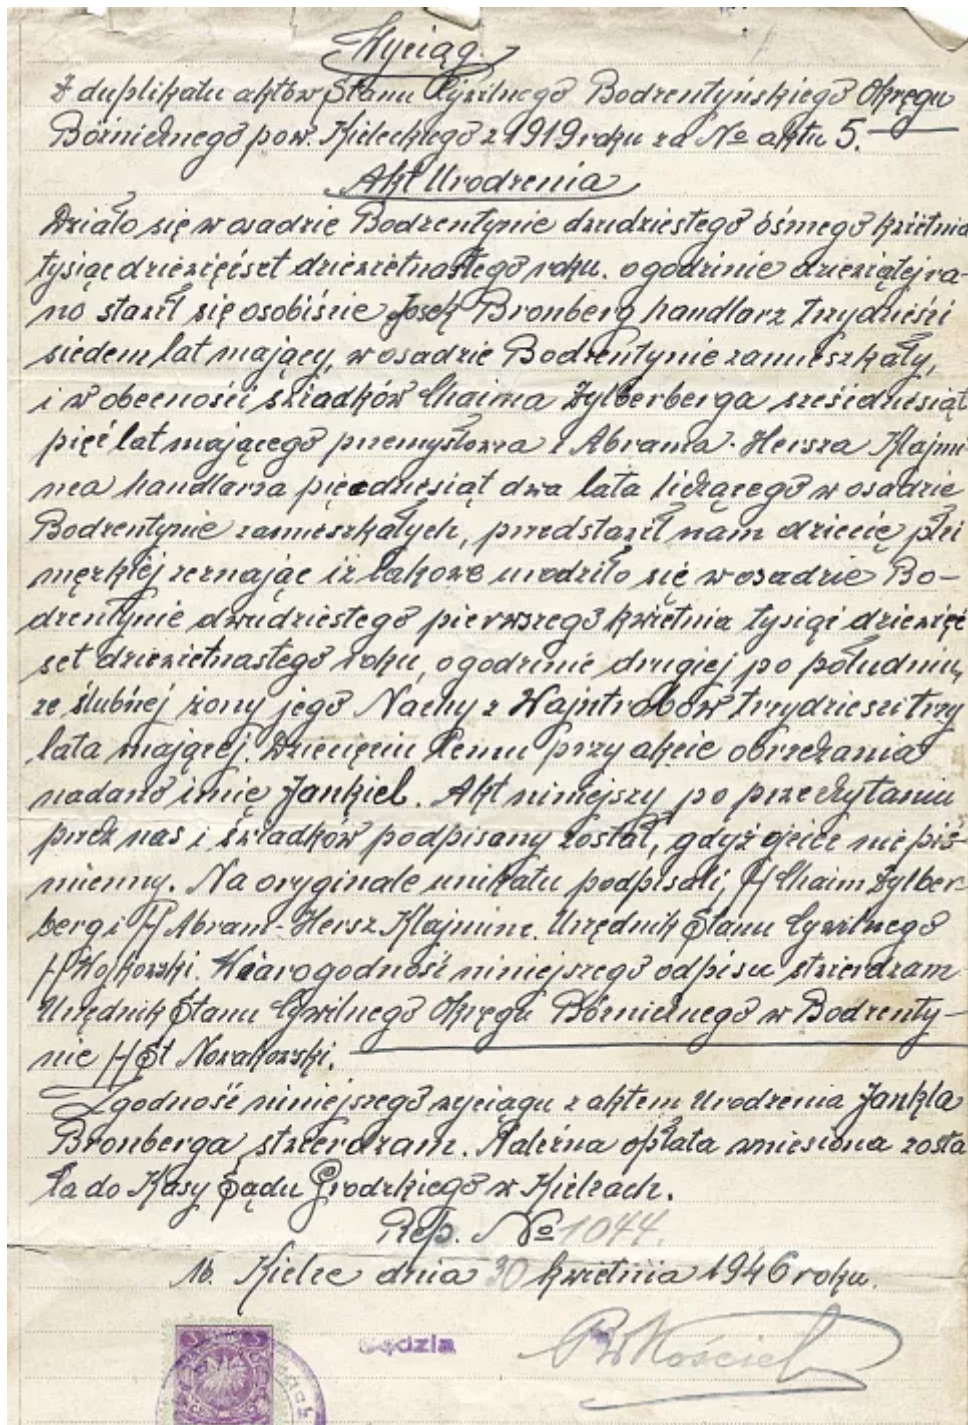 Wyciąg.
Z duplikatu aktów Stanu Cywilnego Bodzentyńskiego Okręgu
Bóżnicznego pow. Kieleckiego z 1919 roku za № aktu 5.
Akt Urodzenia
Działo się w osadzie Bodzentynie dwudziestego ósmego kwietnia
tysiąc dziewięćset dziewietnastego roku. o godzinie dziewiątej ra-
no stawił się osobiście Josek Bronberg handlarz trzydzieści
siedem lat mający, w osadzie Bodzentynie zamieszkały,
i w obecności świadków Chaima Zylberberga sześćdziesiąt
pięć lat mającego przemysłowca i Abrama-Hersza Klajmi-
nca handlarza pięćdziesiąt dwa lata liczącego w osadzie
Bodzentynie zamieszkałych, przedstawił nam dziecię płci
męzkiej zeznając iż takowe urodziło się w osadzie Bo-
dzentynie dwudziestego pierwszego kwietnia tysiąc dziewięć
set dziewietnastego roku, o godzinie drugiej po południu,
ze ślubnej żony jego Nachy z Wajntrobów trzydzieści trzy
lata mającej. Dziecięciu temu przy akcie obrzezania
nadano imię Jankiel. Akt niniejszy po przeczytaniu
przez nas i świadków podpisany został, gdyż ojciec nie piś-
mienny. Na oryginale unikatu podpisali, /-/ Chaim Zylber-
berg i /-/ Abram-Hersz Klajminc. Urzędnik Stanu Cywilnego
/-/ Wojkowski. Wiarogodność niniejszego odpisu stwierdzam
Urzędnik Stanu Cywilnego Okręgu Bóżnicznego w Bodzenty-
nie /-/ St Nowakowski.
Zgodność niniejszego wyciągu z aktem Urodzenia Jankla
Bronberga stwierdzam. Należna opłata wniesiona zosta
ła do Kasy Sądu Grodzkiego w Kielcach.
Rep. № 1044.
M. Kielce dnia 30 kwietnia 1946 roku.
Sędzia